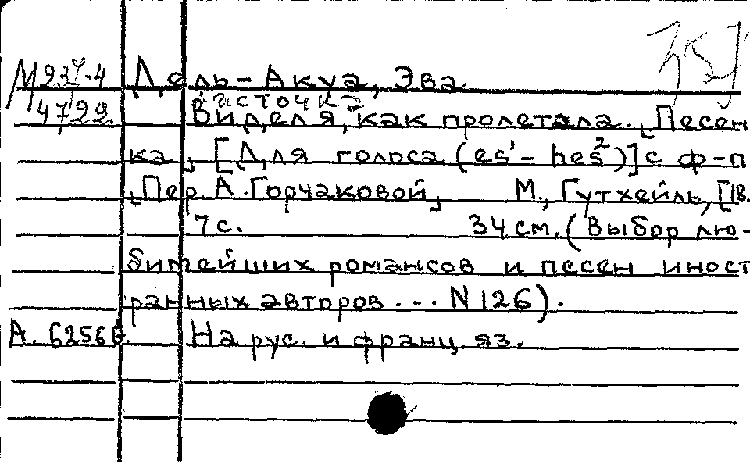 М 937-4 Дель-Аква, Эва.
ласточка
4722 Видел я, как пролетала. [Песен
ка], [Для голоса (es¹ - hes²)] с ф-п
[Пер. А. Горчаковой] М., Гутхейль, [18.
7 с. 34 см. (Выбор лю-
бимейших романсов и песен иност
ранных авторов ... N 126).
А. 6256 На рус. и франц. яз.